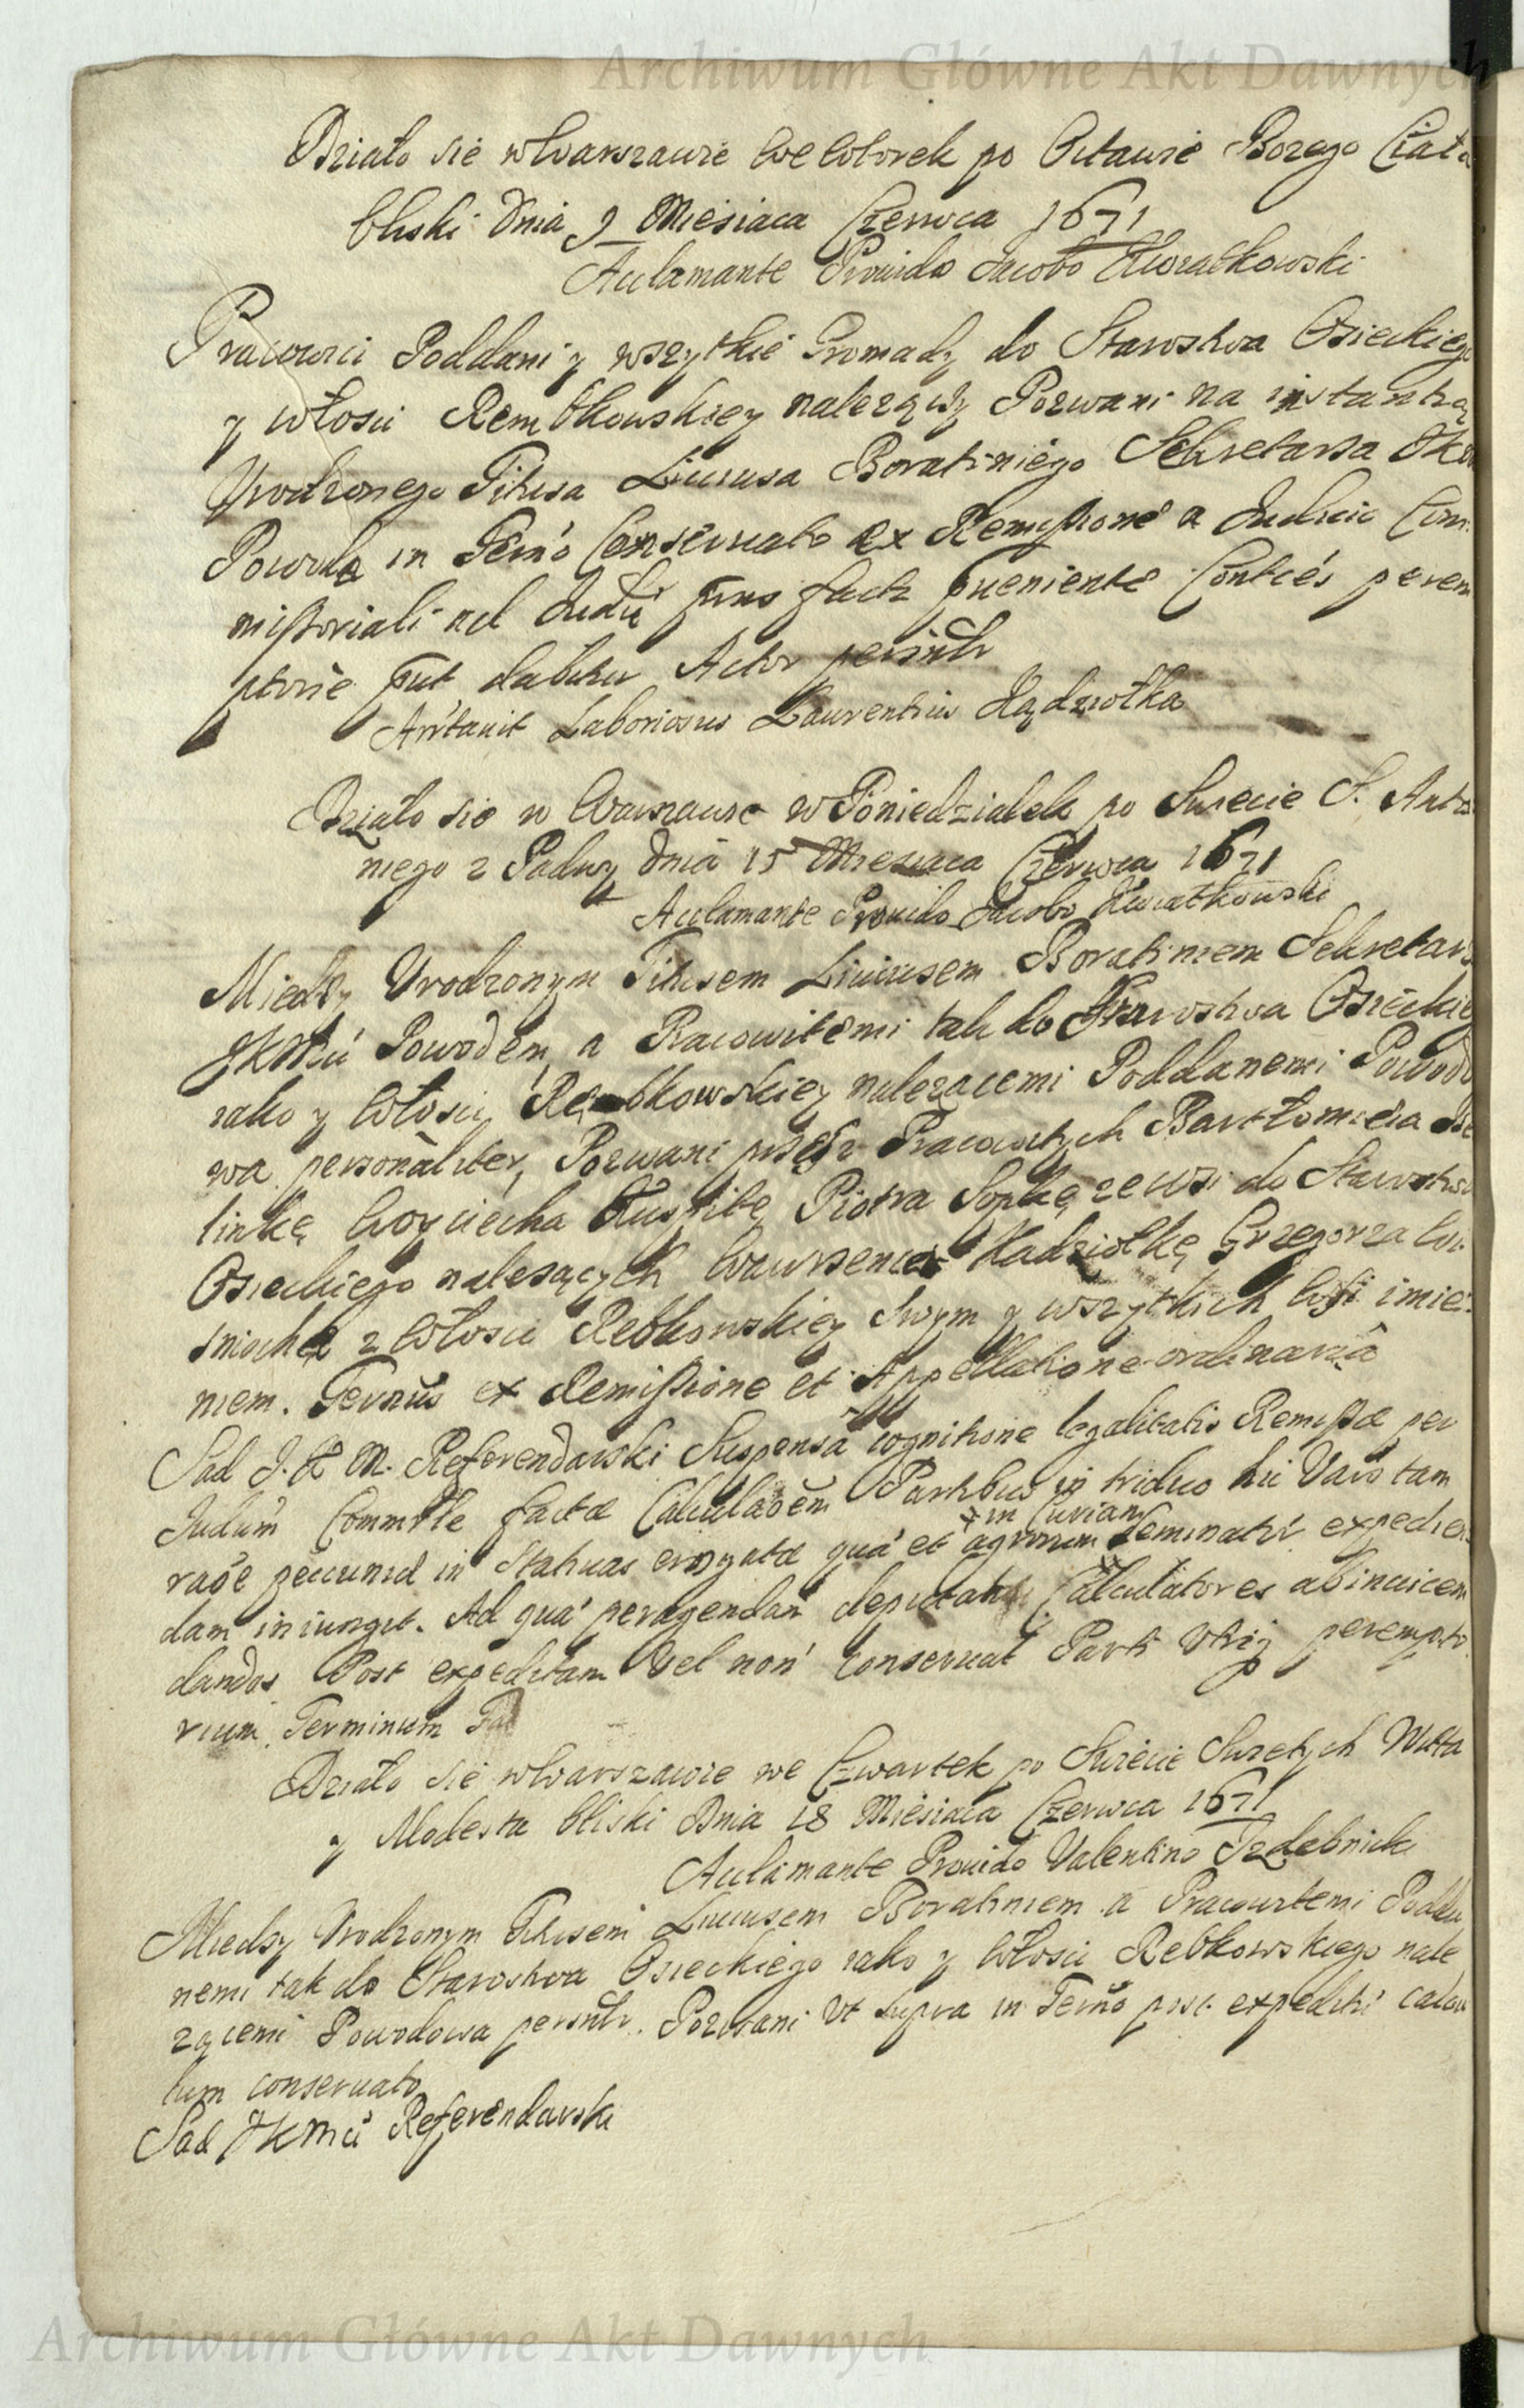 Archiwum Główne Akt Dawnych
Działo się w Warszawie we Wtorek po Octawie Bozego Ciała
bliski Dnia 9 Miesiaca Czerwca 1671
Acclamante Prouido Jacobo Kwiatkowski
Pracowici Poddani y wszytkie Gromady do Starostwa Osieckiego
y włosci Rembkowskiey nalezący Pozwani na instantią
Urodzonego Titusa Liuiusa Boratiniego Sekretarza JKM
Powoda in Termo Conseruato ex Remissione a Judicio Com
missoriali ad Judiu pns factz pueniente Contes perem
ptorie put dabitur Actor personlr
Arrtauit Laboriosus Laurentius Kądziołka
Działo się w Warszawie w Poniedziałek po Swiecie S. Anto
niego z Paduy Dnia 15 Miesiaca Czerwca 1671
Acclamante Prouido Jacobo Kwiatkowski
Miedzy Urodzonym Titusem Liuiusem Boratiniem Sekretarz
JKMci Powodem, a Pracowitemi tak do Starostwa Osieckie
iako y Włosci Rembkowskiey nalezącemi Poddanemi Powodo
wa personaliter, Pozwani przez Pracowitych Bartłomieia
linkę Woyciecha Piotra Sopkę ze wsi do Starostwa
Osieckiego nalezących Wawrzenca Kadziołkę Grzegorza
z Włosci Rebkowskiey Swym y wszytkich Wsi imie
niem. Termus ex Remissione et Appellatione ordinaria
Sad J. K M. Referendarski Suspensa cognitione legalitatis Remissæ per
Judum Commrle factæ Calculaoem Partibus in triduo hic Varo tam
raoe pecuniæ in Statuas erogatæ qua et agrorum + in Curiam seminatri expedien
dam iniungit. Ad qua peragendam deputat Calculatores abinuicem
dandos Post expeditam vel non conseruat Parti Vtriq perempto
rium Terminum
Działo się w Warszawie we Czwartek po Swiecie Swietych Wita
y Modesta bliski Dnia 18 Miesiaca Czerwca 1671
Acclamante Prouido Valentino Izdebnicki
Miedzy Urodzonym Titusem Liuiusem Boratiniem a Pracowitemi Podda
nemi tak do Starostwa Osieckiego iako y Włosci Rebkowskiego nale
zącemi Powodowa personlr. Pozwani Vt supra in Termo post expeditu calcu
lum conseruato
Sad JKMci Referendarski
Archiwum Główne Akt Dawnych